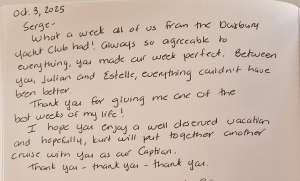 Oct. 3, 2025
Serge-
What a week all of us from the Duxbury
Yacht Club had! Always so agreeable to
everything, you made our week perfect. Between
you, Julian and Estelle, everything couldn't have
been better
Thank you for giving me one of the
best weeks of my life!
I hope you enjoy a well deserved vacation
and hopefully, Kurt will put together another
cruise with you as our Captain.
Thank you - thank you - thank you.